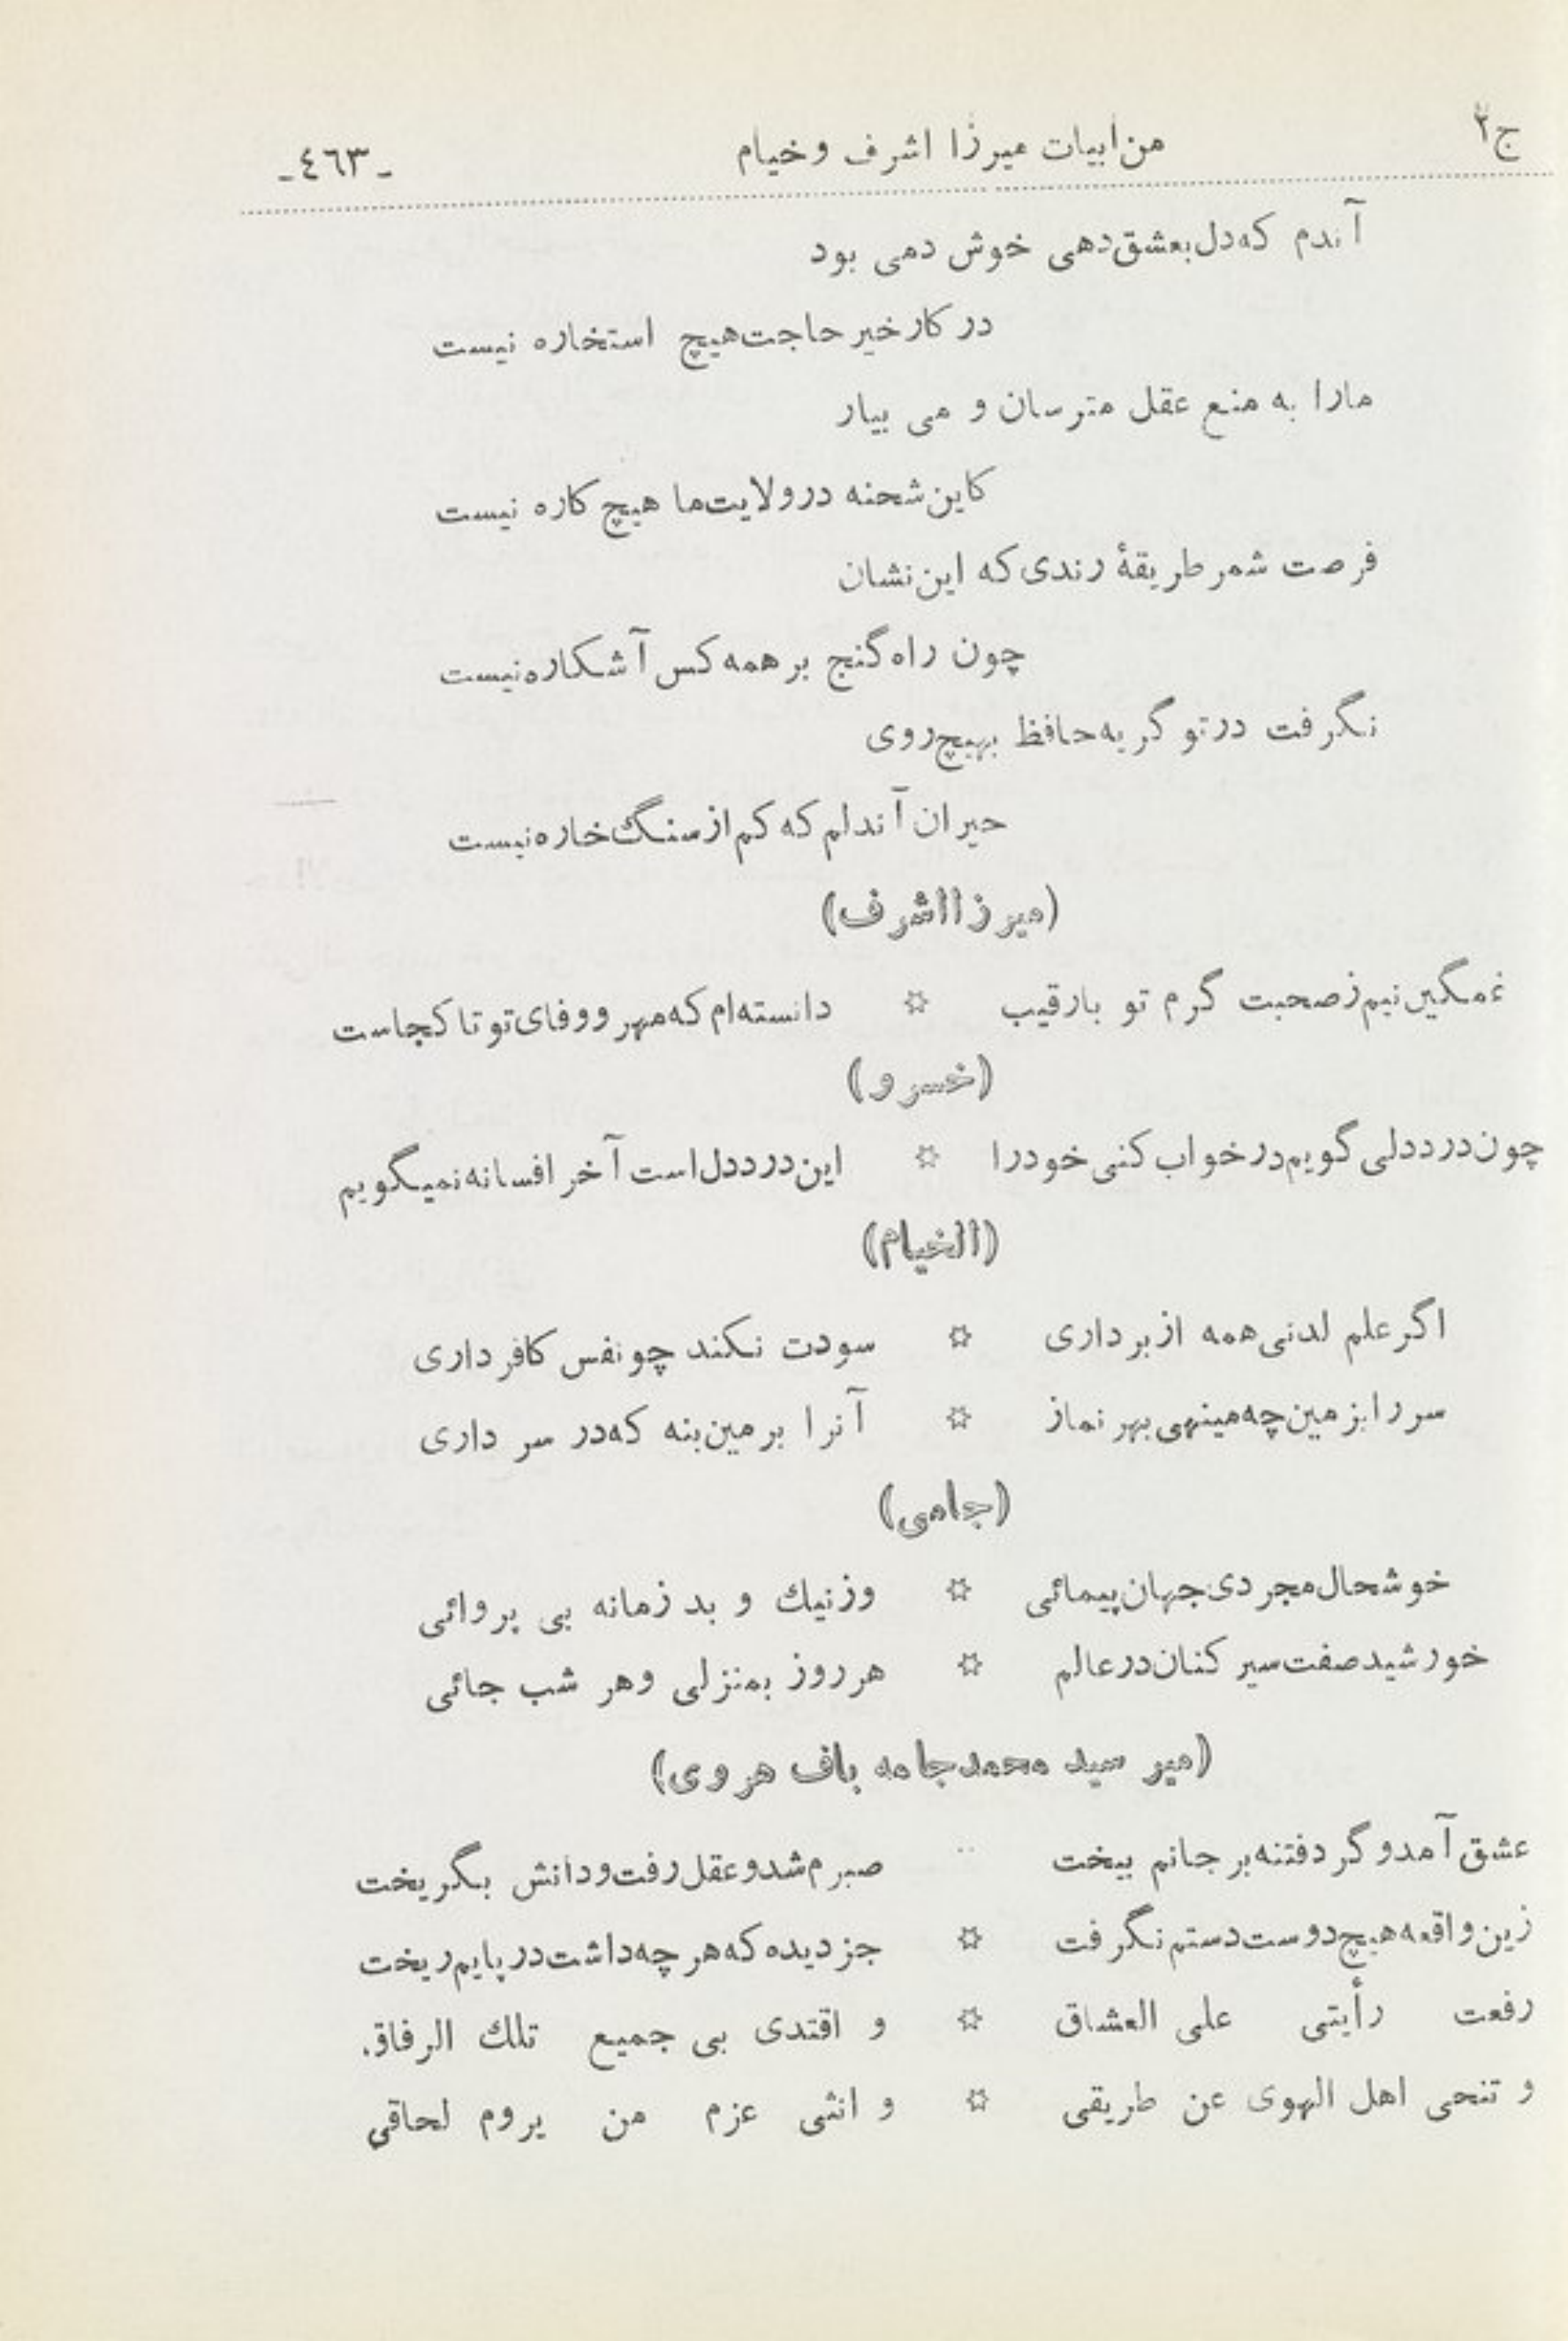 ج۲ من ابیات میرزا اشرف وخیام -٤٦٣-
آندم که دل بعشق دهی خوش دمی بود
در کار خیر حاجت هیچ استخاره نیست
مارا به منع عقل مترسان و می بیار
کاین شحنه در ولایت ما هیچ کاره نیست
فرصت شمر طریقهٔ رندی که این نشان
چون راه گنج بر همه کس آشکاره نیست
نگرفت در تو گریه حافظ بهیچ روی
حیران آندلم که کم از سنگ خاره نیست
(میرزا اشرف)
غمگین نیم ز صحبت گرم تو بارقیب ☆ دانسته ام که مهر و وفای تو تا کجاست
(خسرو)
چون درد دلی گویم در خواب کنی خودرا ☆ این درد دل است آخر افسانه نمیگویم
(الخیام)
اگر علم لدنی همه از بر داری ☆ سودت نکند چو نفس کافر داری
سر را بزمین چه مینهی بهر نماز ☆ آنرا برمین بنه که در سر داری
(جامی)
خوشحال مجردی جهان پیمائی ☆ وز نیك و بد زمانه بی پروائی
خورشید صفت سیر کنان در عالم ☆ هر روز بمنزلی وهر شب جائی
(میر سید محمد جامه باف هروی)
عشق آمد و گرد فتنه بر جانم بیخت صبرم شد و عقل رفت و دانش بگریخت
زین واقعه هیچ دوست دستم نگرفت ☆ جز دیده که هر چه داشت در پایم ریخت
رفعت رأیتی علی العشاق ☆ و اقتدی بی جمیع تلك الرفاق
و تنحی اهل الهوی عن طریقی ☆ و انثی عزم من یروم لحاقی